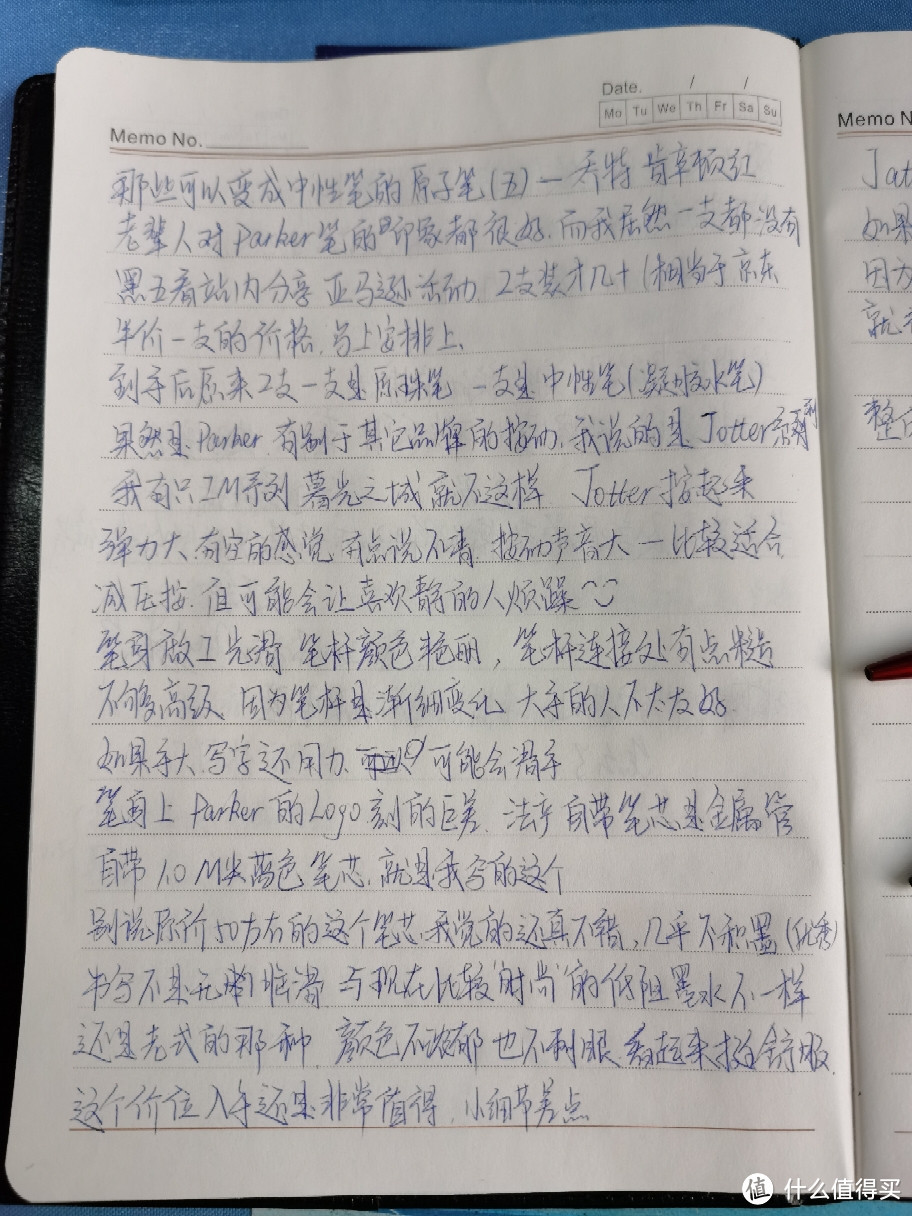 Date. / /
Mo Tu We Th Fr Sa Su
Memo No.
那些可以变成中性笔的原子笔(五)一乔特 肯辛顿红
老辈人对Parker笔的印象都很好.而我居然一支都没有
黑五看站内分享 亚马逊活动. 2支装才几十(相当于京东
半价一支的价格.马上安排上.
到手后原来2支一支是原珠笔 一支是中性笔(凝胶水笔)
果然是Parker.有别于其它品牌的按动.我说的是Jotter系列
我有只IM系列 暮光之城就不这样 Jotter按起来
弹力大 有空的感觉 有点说不清.按动声音大一比较适合
减压按.但可能会让喜欢静的人烦躁
笔身做工光滑 笔杆颜色艳丽,笔杆连接处有点糙
不够高级.因为笔杆是渐细变化 大手的人不太友好
如果手大.写字还用力.可能会滑手
笔身上 Parker的Logo刻的巨差.法产 自带笔芯是金属管
自带 1.0 M尖蓝色笔芯.就是我写的这个
别说原价50左右的这个笔芯.我觉的还真不错,几乎不积墨(优秀)
书写不是无脑顺滑 与现在比较"时尚"的低阻墨水不一样
还是老式的那种.颜色不浓郁也不刺眼 看起来挺舒服.
这个价位入手还是非常值得.小细节差点
Memo N
Jot
如果
因为
就
整
值 什么值得买